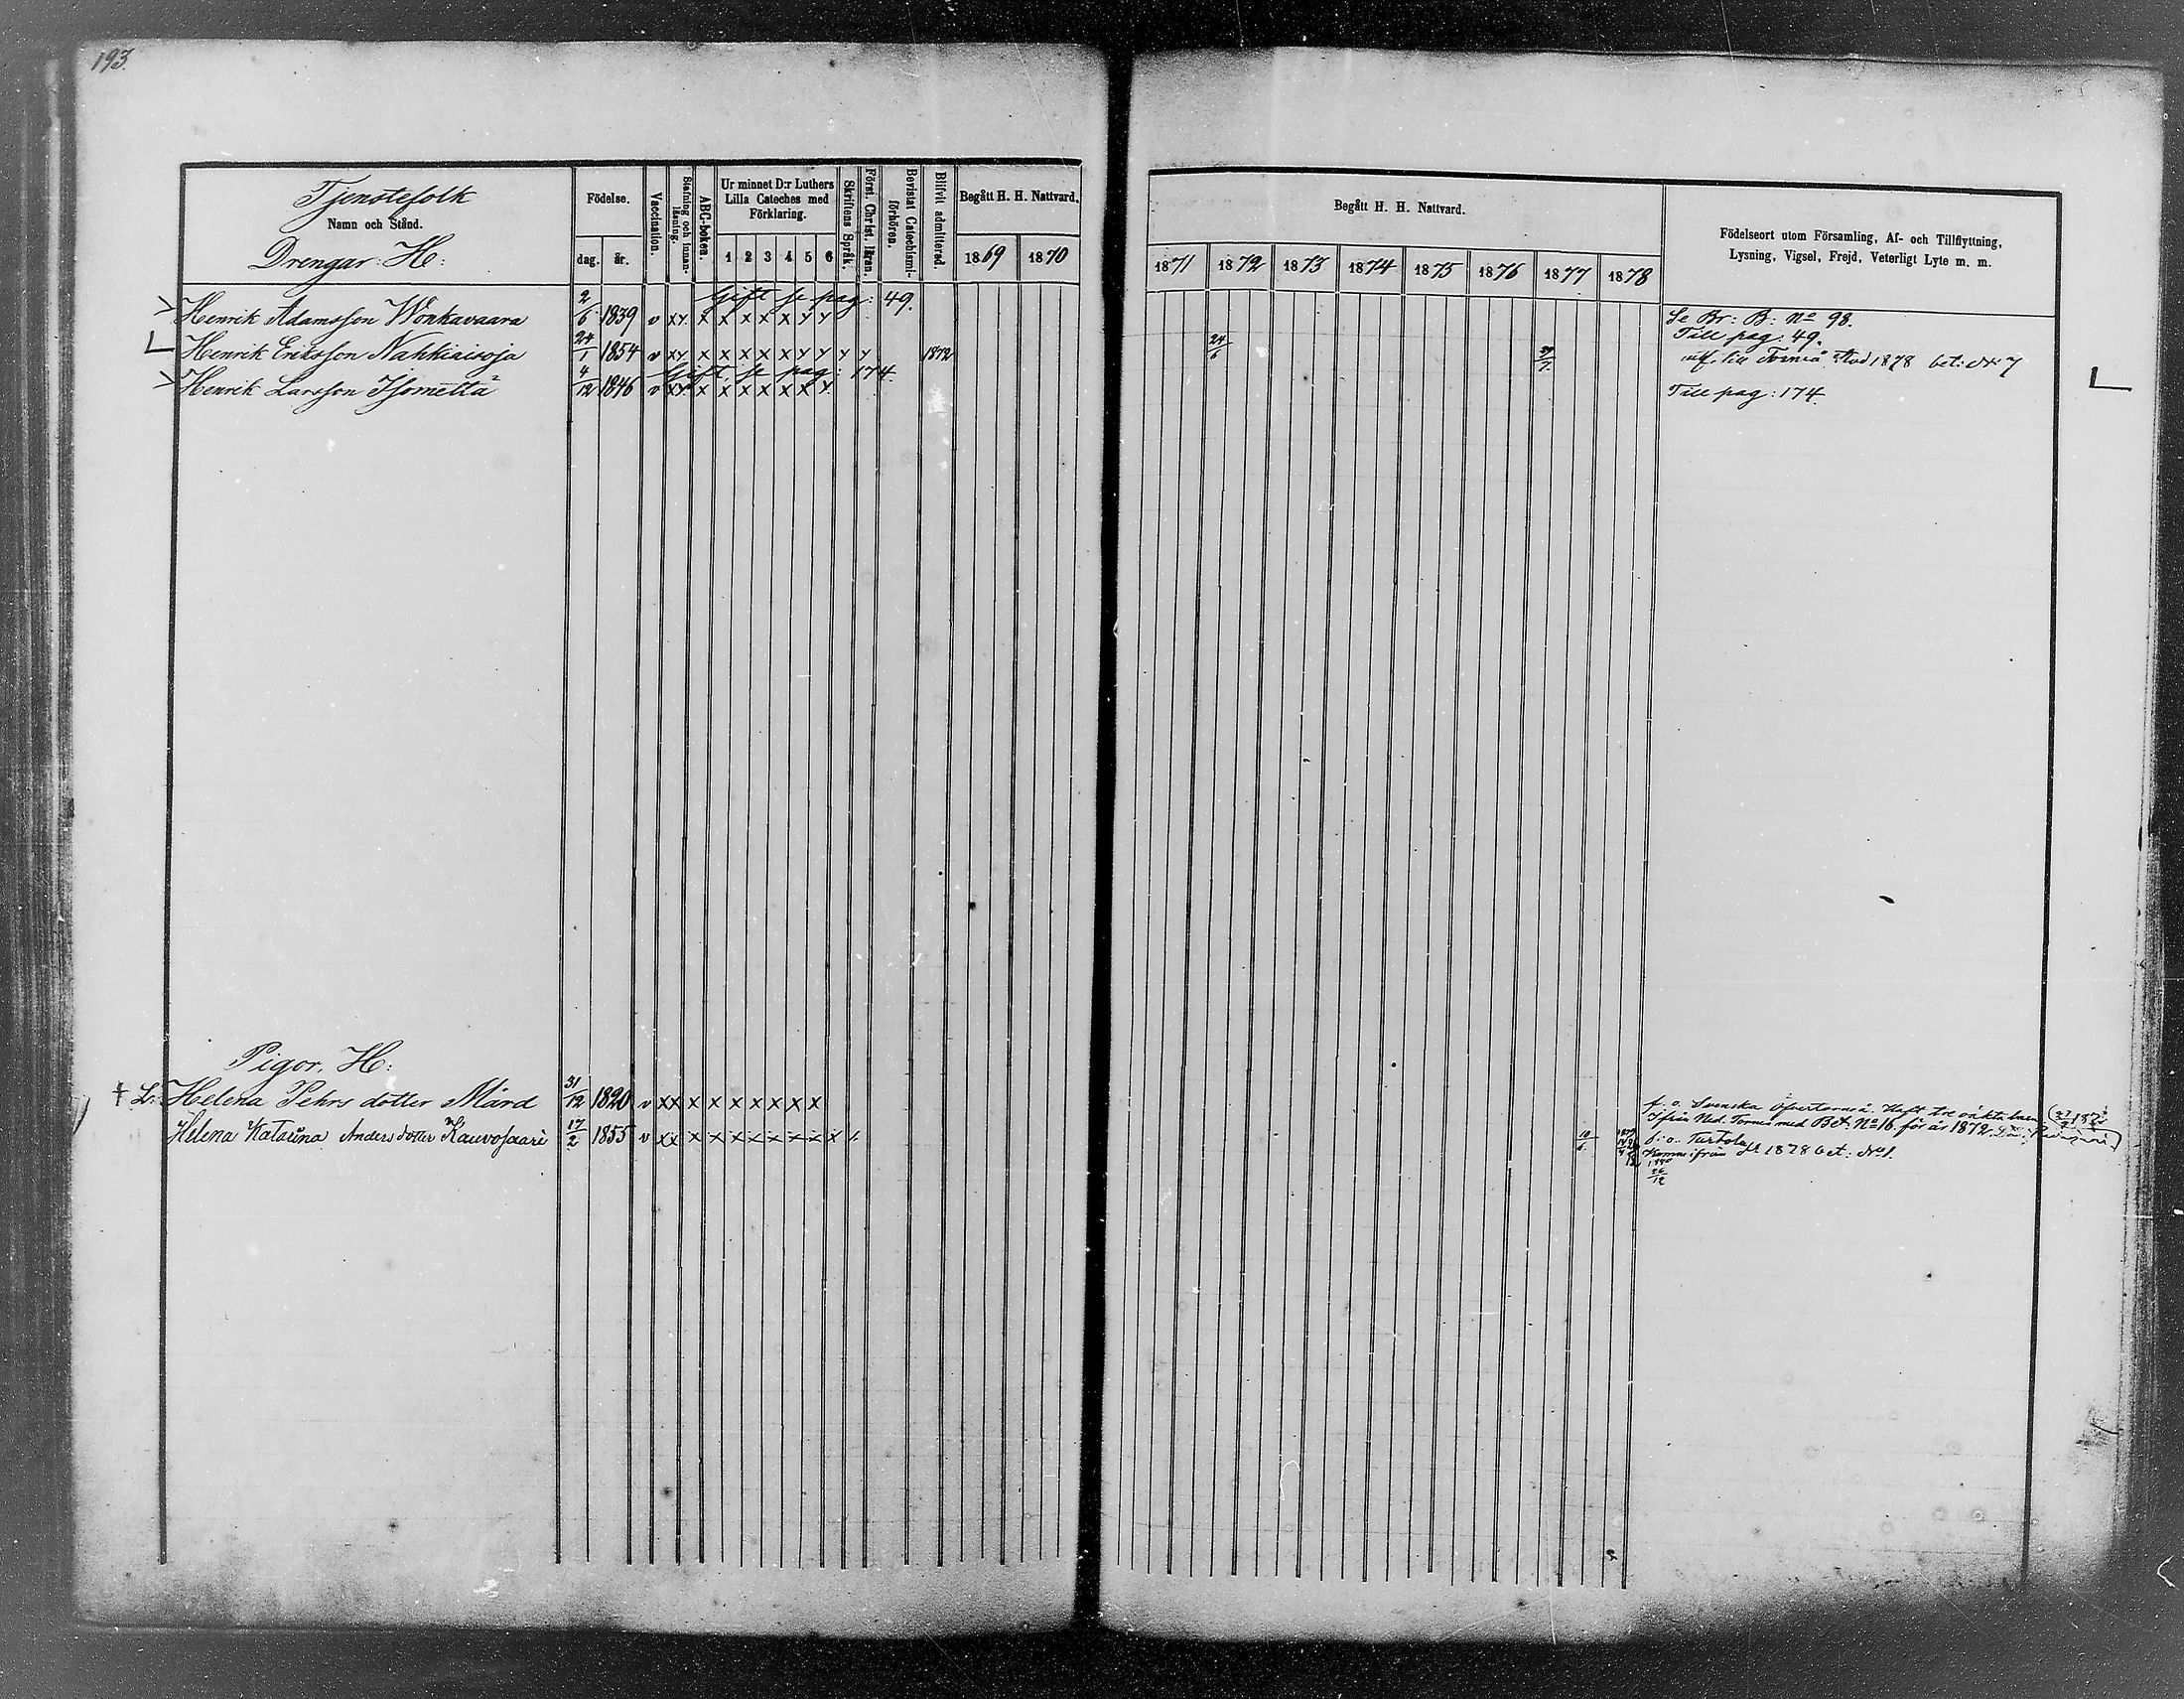 193.
Tjenstefolk
Namn och Stånd.
Drengar. H:
Födelse.
dag. år.
Vaccination.
Stafning och innanläsning.
ABC-boken.
Ur minnet D:r Luthers
Lilla Cateches med
Förklaring.
1 2 3 4 5 6
Skriftens Språk.
Först. Christ. läran.
Bevistat Catechismiförhören.
Blifvit admitterad.
Begått H. H. Nattvard.
1869 1870
Begått H. H. Nattvard.
1871 1872 1873 1874 1875 1876 1877 1878
Födelseort utom Församling, Af- och Tillflyttning,
Lysning, Vigsel, Frejd, Veterligt Lyte m. m.
Gift se pag: 49.
Henrik Adamsson Wonkavaara 2/6 1839 v xy x x x x x y y Se Br: B: No 98.
Till pag. 49.
Henrik Eriksson Nahkiaisoja 24/1 1854 v xy x x x x x y y y y 1872 24/6 utf. till Torneå Stad 1878 bet: No 7
Gift se pag: 174.
Henrik Larsson Isometta 4/12 1846 v xy x x x x x x y Till pag: 174.
Pigor. H:
Helena Pehrs dotter Mård 31/12 1820 v xx x x x x x x x f. o. Svenska Öfvertorneå. Haft tre oäkta barn
Ifrån Ned. Torneå med Bet. No 16 för år 1872.
Helena Katarina Anders dotter Kauvosaari 17/2 1855 v xx x x x x x x x x f. o. Turtola
Kommen ifrån 1878 bet: No 1.